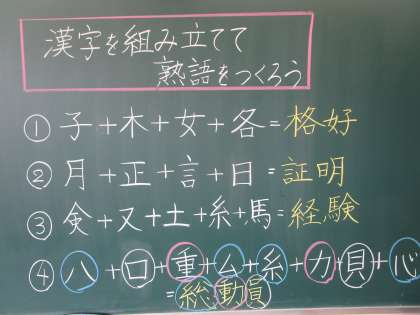 漢字を組み立てて
熟語をつくろう
① 子+木+女+各=格好
② 月+正+言+日=証明
③ 㑒+又+土+糸+馬=経験
④ 八+口+重+ム+糸+力+貝+心
=総動員